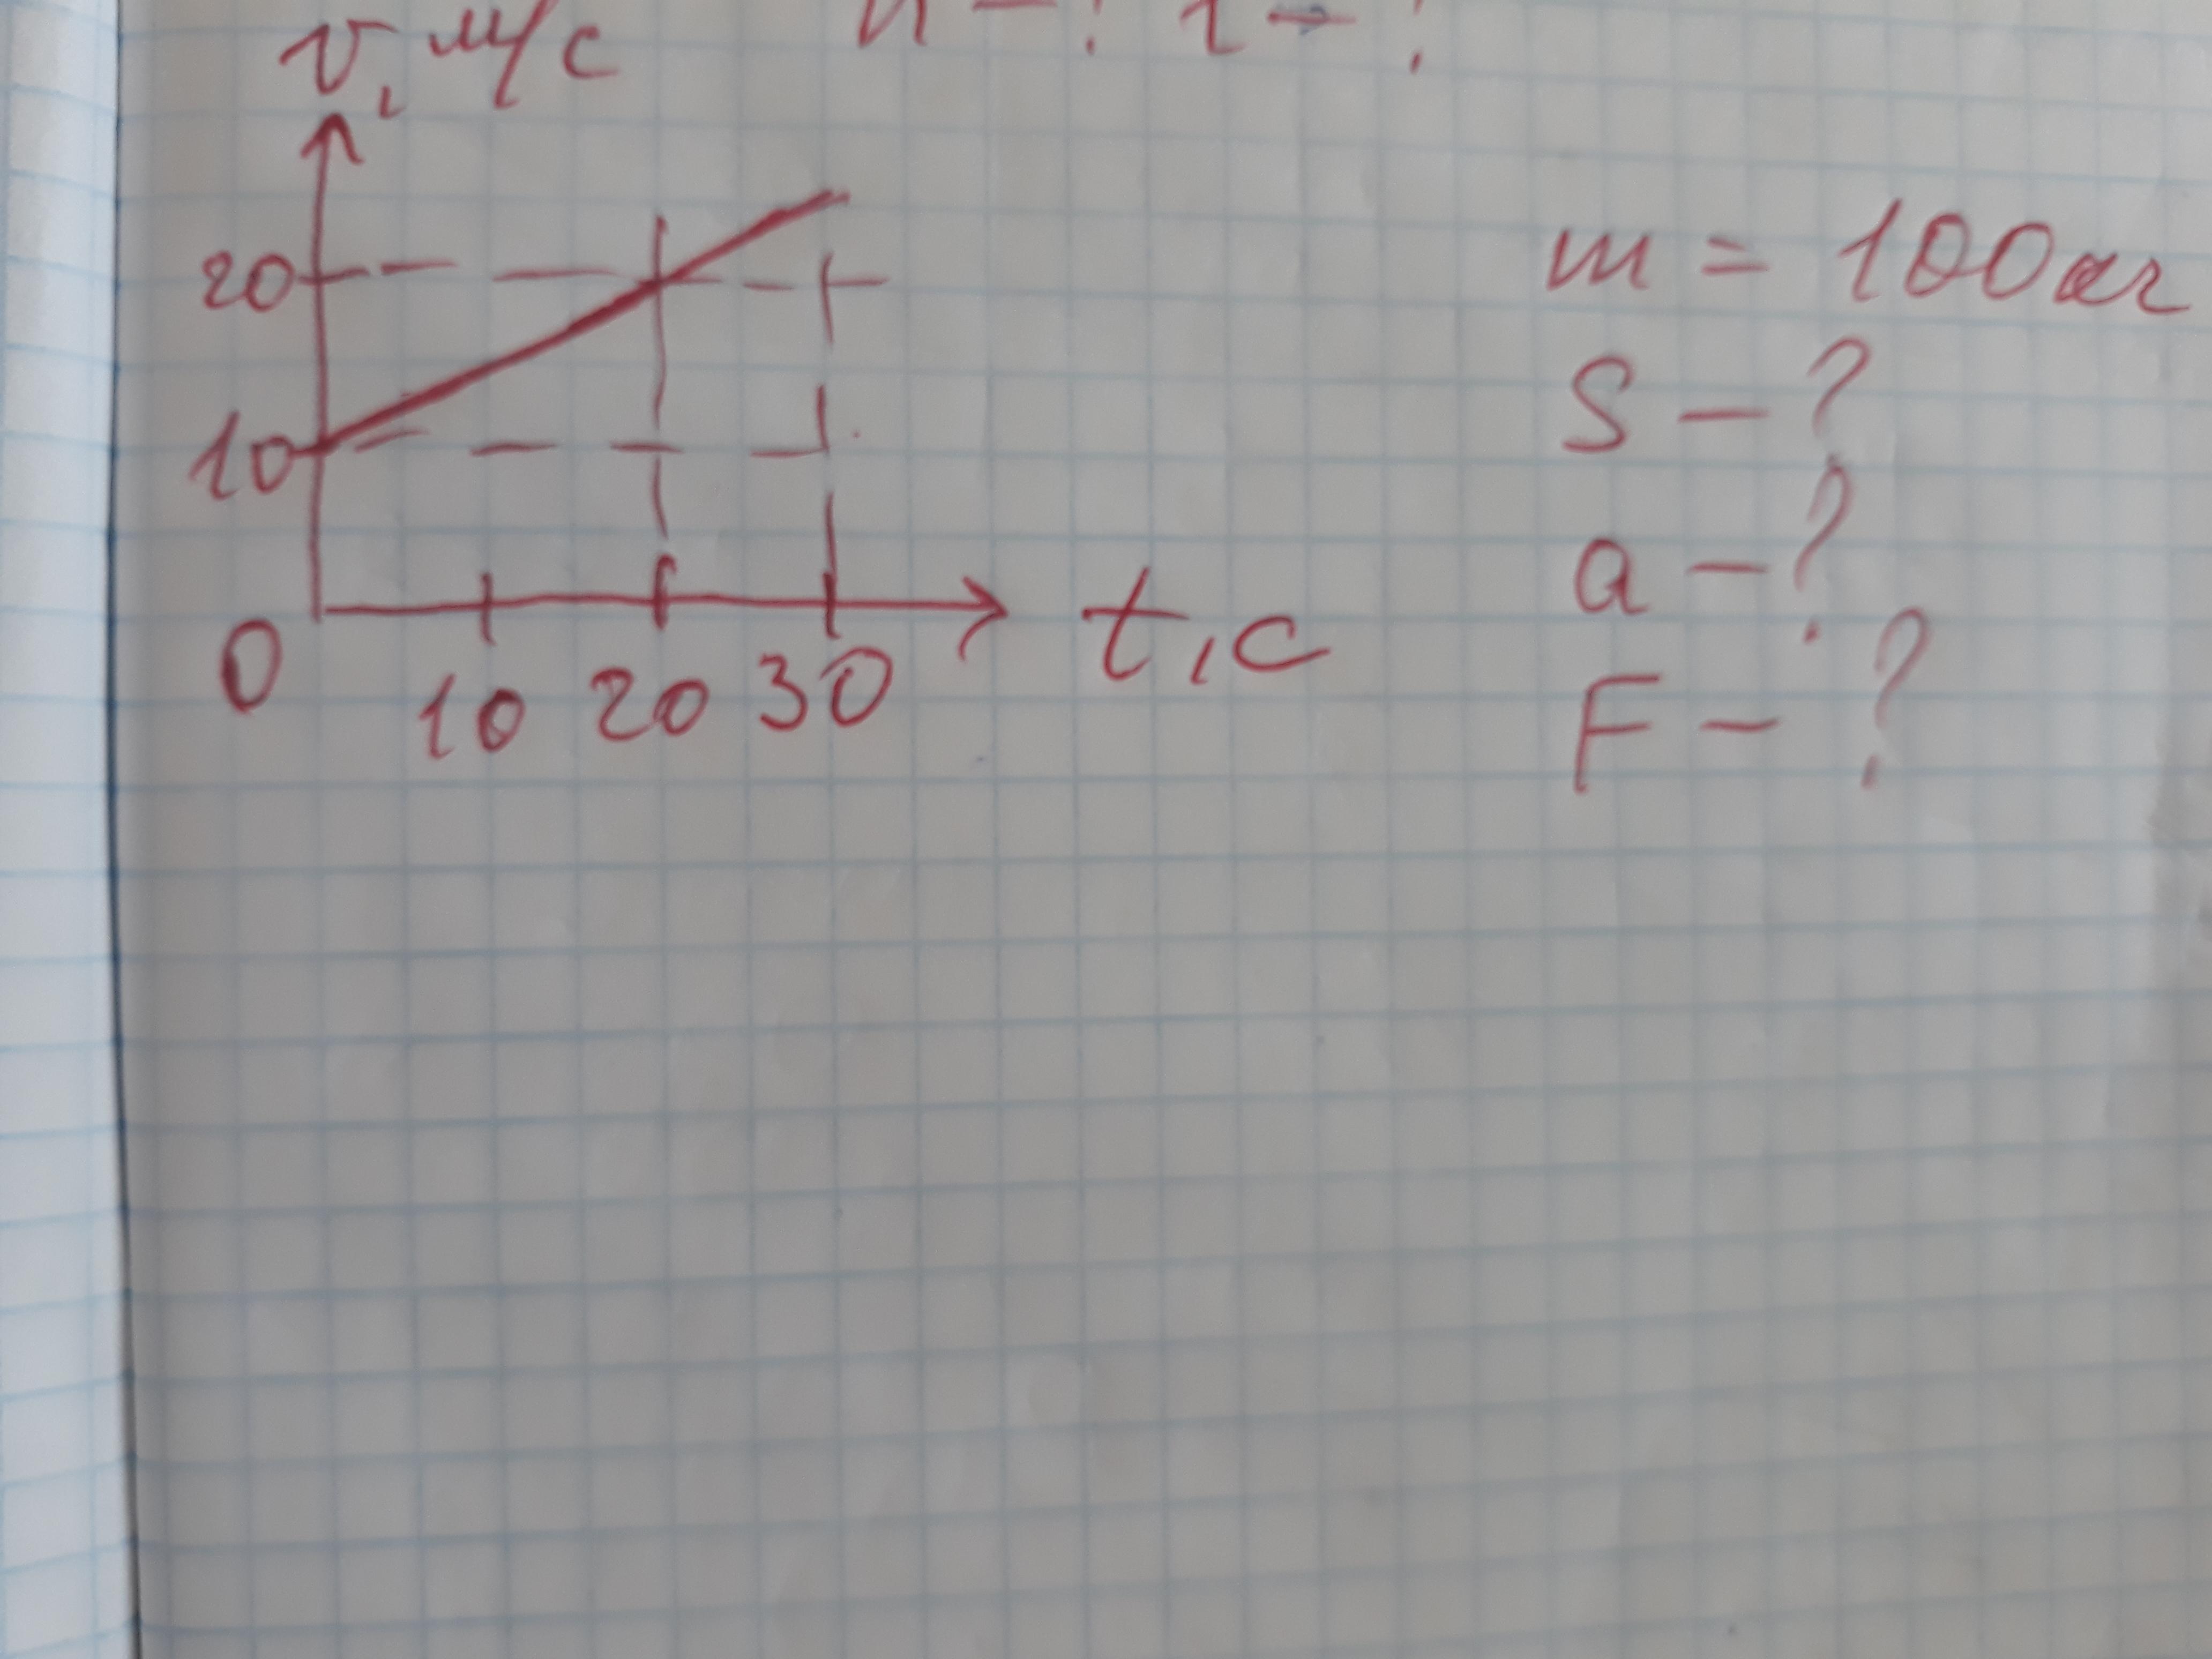 v, м/с
20
10
0
10 20 30
t, с
m = 100 кг
S – ?
a – ?
F – ?